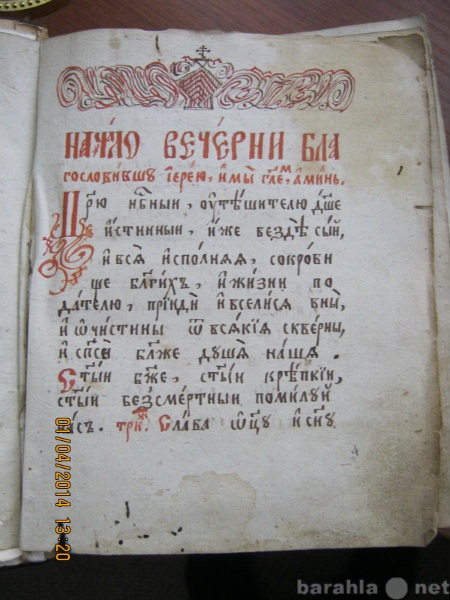 НАЧА́ЛО ВЕЧЕ́РНИ БЛА
гословившꙋ і҆ере́ю, и҆ мы̀ гл҃емъ, а҆ми́нь.
Цр҃ю нб҃ныи, ᲂу҆тѣ́шителю дш҃е
и҆́стинныи, и҆́же вездѣ̀ сы́й,
и҆ всѧ̀ и҆сполнѧ́ѧ, сокрови
ще бл҃ги́хъ, и҆ жи́зни по
да́телю, прїидѝ и҆ всели́сѧ в ны̀,
и҆ ѡ҆чи́стины ѿ всѧ́кїѧ скве́рны,
и҆ сп҃сѝ бл҃же дꙋ́шѧ на́шѧ.
Ст҃ы́и бж҃е, ст҃ы́и крѣ́пкїи,
ст҃ы́и безсме́ртныи поми́лꙋй
на́съ. три́ж. Сла́ва ѻ҆ц҃ꙋ̀ и҆ сн҃ꙋ
01/04/2014 13:20
barahla.net